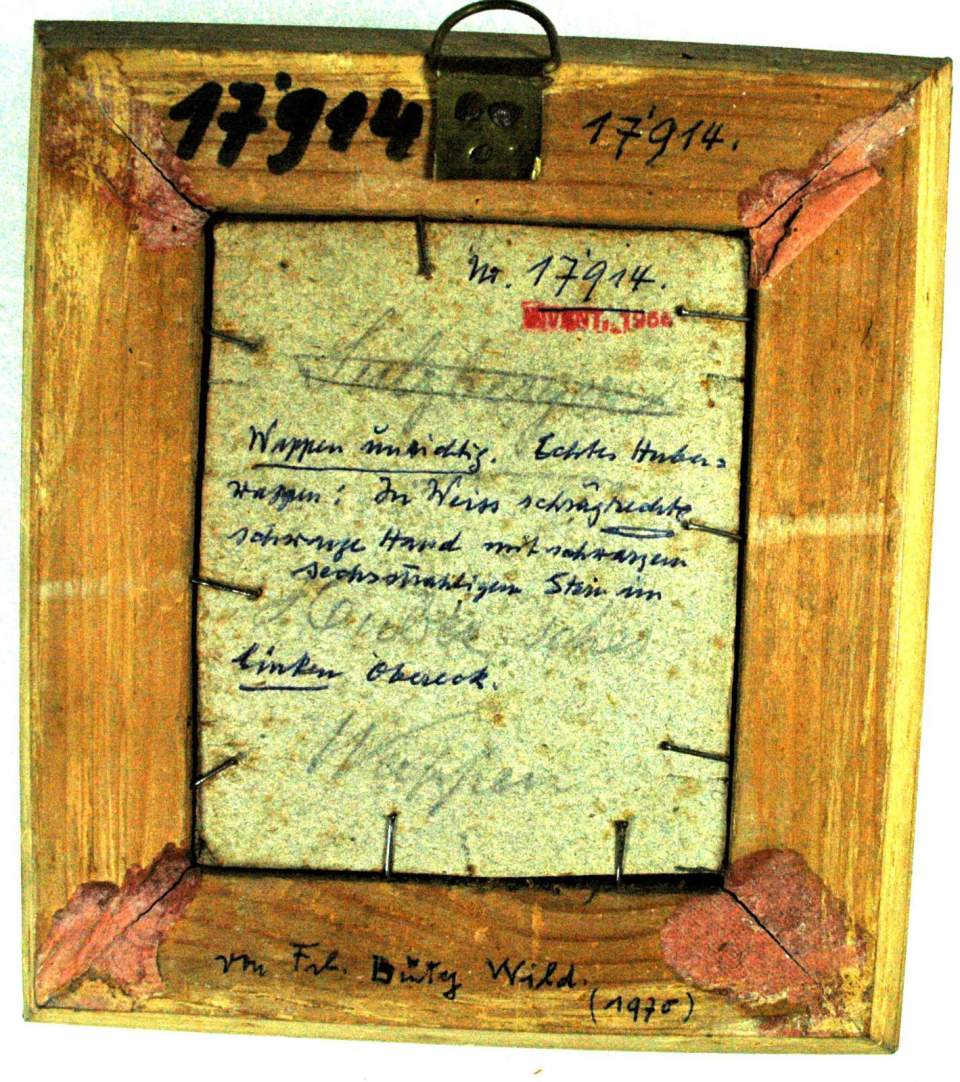 17'914
17'914.
Nr. 17'914.
INVENT. 1964
Wappen unrichtig. Echtes Huber=
wappen: In Weiss schrägrechte
schwarze Hand mit schwarzem
sechsstrahligem Stern im
sches
linken Obereck.
Wappen
von Frl. Wild.
(1970)